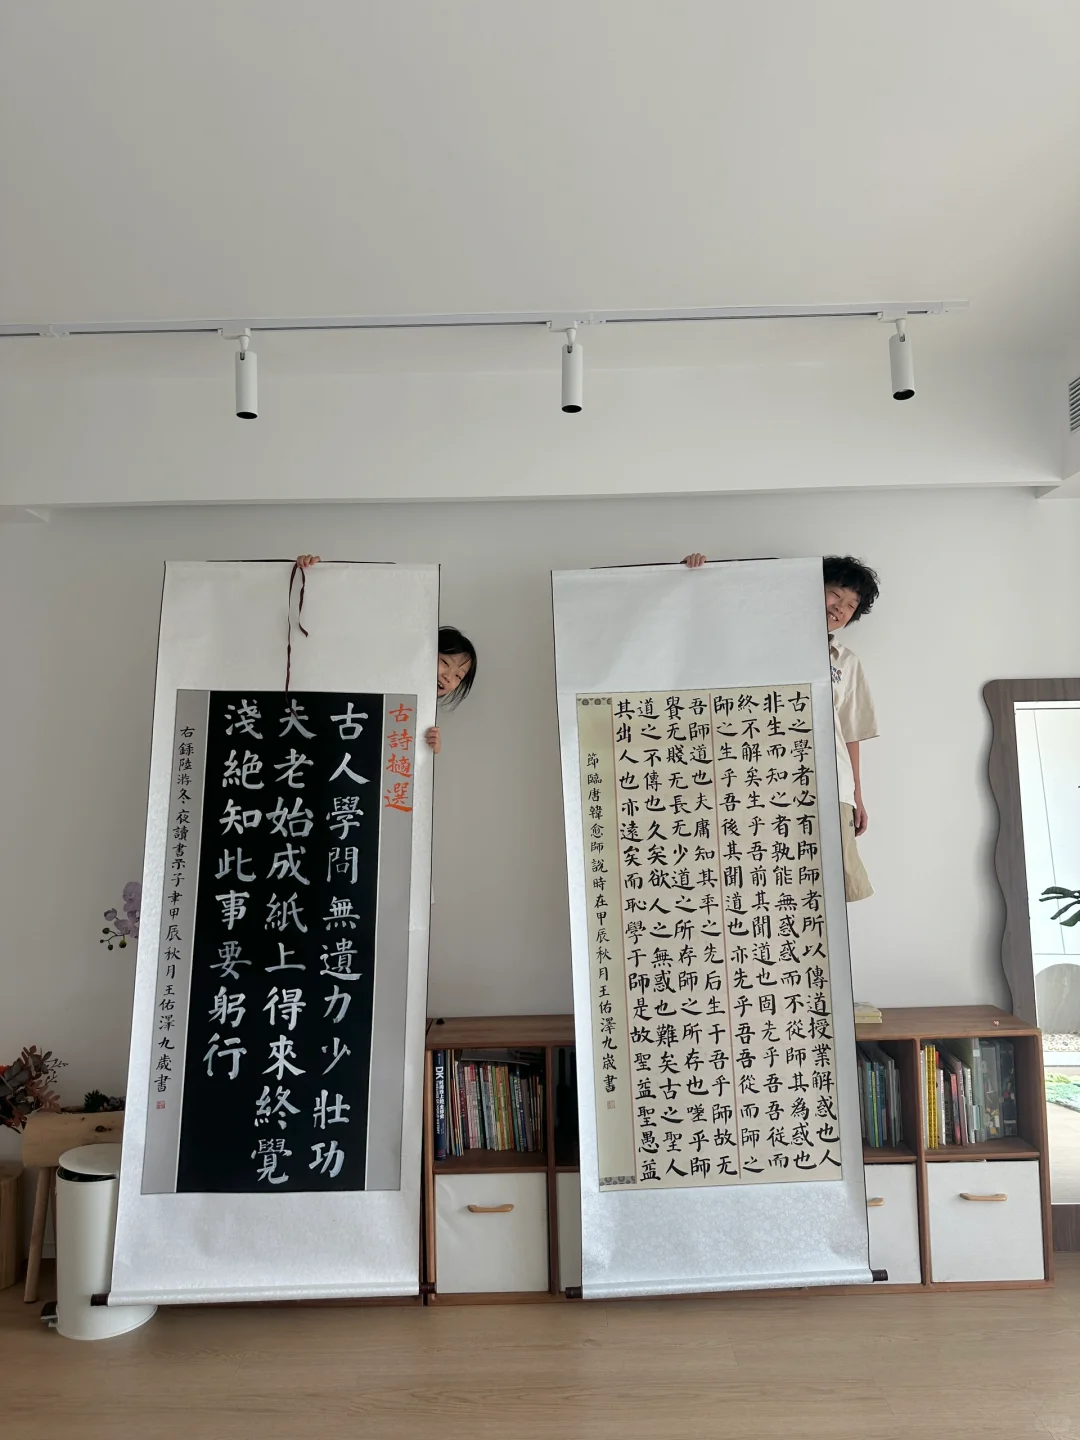 古詩摘選
古人學問無遺力少壯功
夫老始成紙上得來終覺
淺絕知此事要躬行
右錄陸游冬夜讀書示子聿甲辰秋月王佑澤九歲書
古之學者必有師師者所以傳道授業解惑也人
非生而知之者孰能無惑惑而不從師其為惑也
終不解矣生乎吾前其聞道也固先乎吾吾從而
師之生乎吾後其聞道也亦先乎吾吾從而師之
吾師道也夫庸知其年之先后生于吾乎師故无
貴无賤无長无少道之所存師之所存也嗟乎師
道之不傳也久矣欲人之無惑也難矣古之聖人
其出人也亦遠矣而恥學于師是故聖益聖愚益
節臨唐韓愈師說時在甲辰秋月王佑澤九歲書
DK